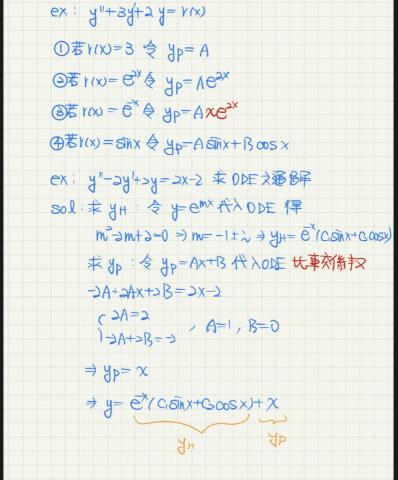 ex: y"+3y'+2y=r(x)
①若r(x)=3 令 yp=A
②若r(x)=e^2x 令 yp=Ae^2x
③若r(x)=e^-x 令 yp=Axe^2x
④若r(x)=sinx 令 yp=Asinx+Bcosx
ex: y"-2y'+2y=2x-2 求ODE之通解
sol:求yH:令 y=e^mx代入ODE 得
m²-2m+2=0 ⇒ m=-1±i ⇒ yH=e^-x(C₁sinx+C₂cosx)
求yp:令 yp=Ax+B 代入ODE 比較係數
-2A+2Ax+2B=2x-2
{2A=2
-2A+2B=-2 , A=1, B=0
⇒ yp=x
⇒ y=e^-x(C₁sinx+C₂cosx)+x
yH yp